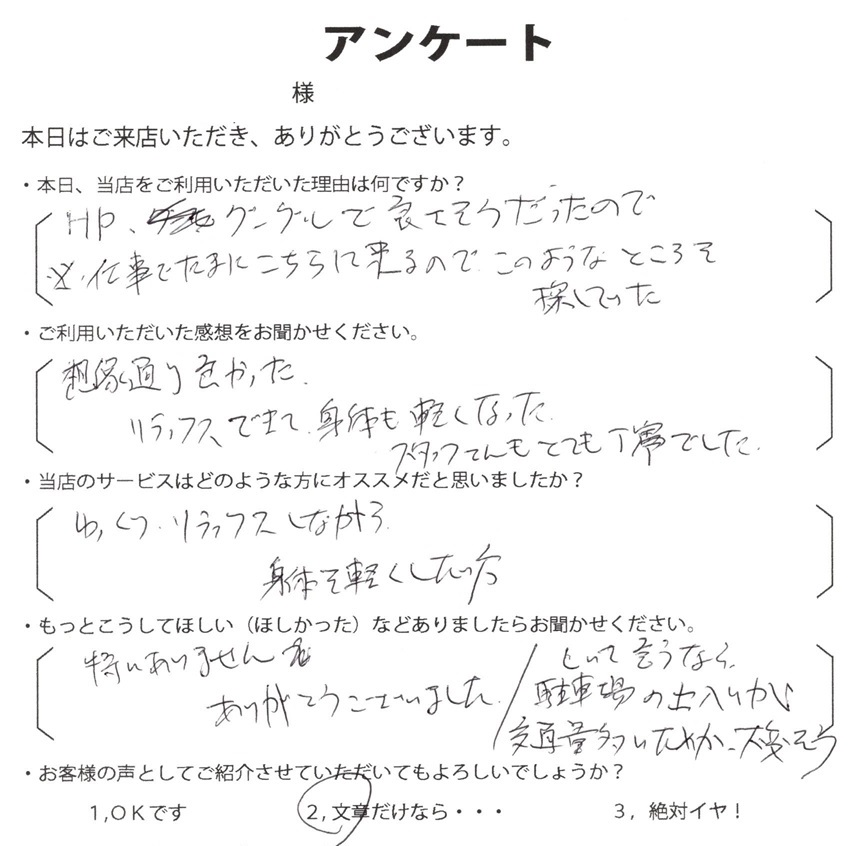 アンケート
様
本日はご来店いただき、ありがとうございます。
・本日、当店をご利用いただいた理由は何ですか？
HP、グーグルで良さそうだったので
仕事でたまにこちらに来るので このようなところを
探していた
・ご利用いただいた感想をお聞かせください。
想像通り良かった.
リラックスできて 身体も軽くなった.
スタッフさんもとても丁寧でした.
・当店のサービスはどのような方にオススメだと思いましたか？
ゆっくり リラックスしながら
身体を軽くしたい方
・もっとこうしてほしい（ほしかった）などありましたらお聞かせください。
特にありません
ありがとうございました.
しいて言うなら、
駐車場の出入りが
交通量多いためか、大変そう
・お客様の声としてご紹介させていただいてもよろしいでしょうか？
1,ＯＫです 2,文章だけなら・・・ 3，絶対イヤ！